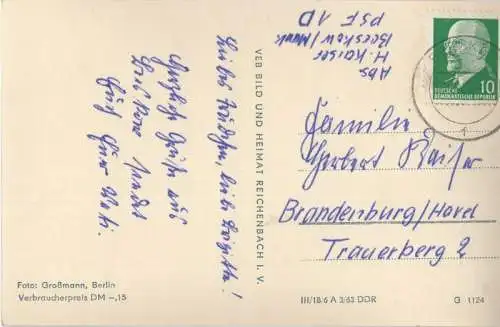 Abs.
H. Kaiser
Beeskow/Mark
PSF 1D
Liebes Friedchen, liebe Brigitte!
Herzliche Grüße aus
sendet
Euch Euer Vati.
VEB BILD UND HEIMAT REICHENBACH I. V.
10
DEUTSCHE
DEMOKRATISCHE REPUBLIK
1
Familie
Herbert Kaiser
Brandenburg/Havel
Trauerberg 2
Foto: Großmann, Berlin
Verbraucherpreis DM –,15
III/18/6 A 3/63 DDR
G 1124